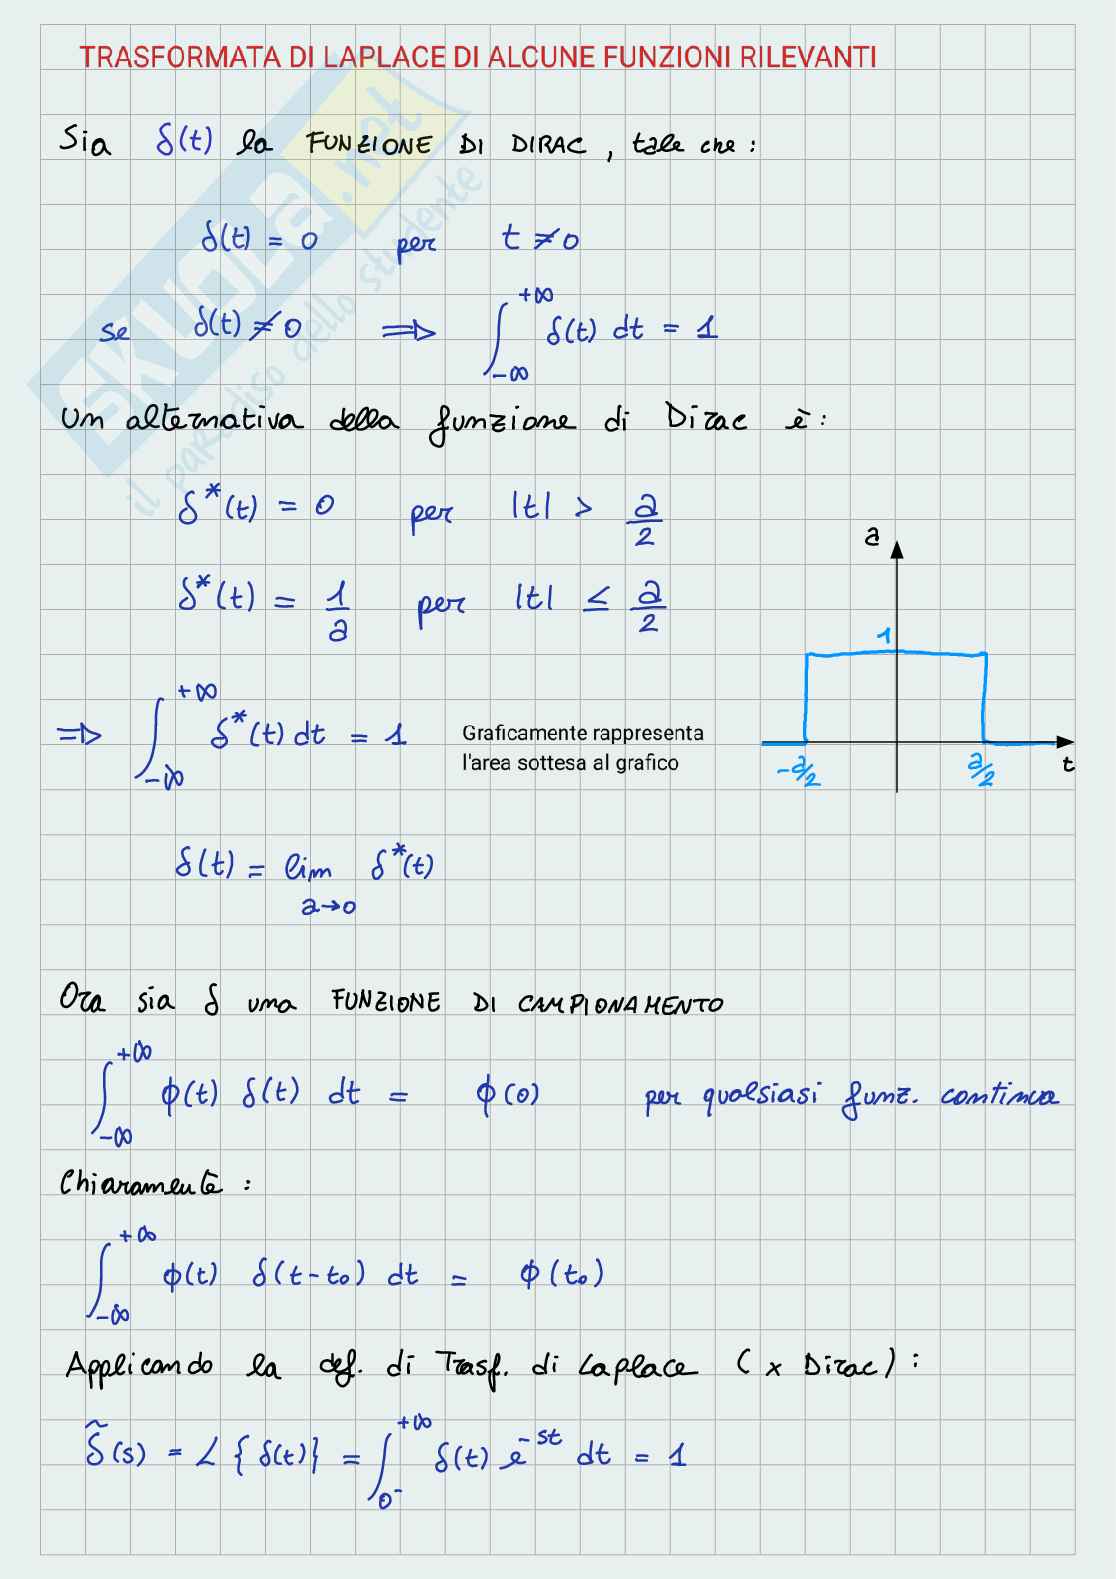 TRASFORMATA DI LAPLACE DI ALCUNE FUNZIONI RILEVANTI
Sia δ(t) la FUNZIONE DI DIRAC, tale che:
δ(t) = 0 per t ≠ 0
se δ(t) ≠ 0 ⟹ ∫_{-∞}^{+∞} δ(t) dt = 1
Un alternativa della funzione di Dirac è:
δ*(t) = 0 per |t| > a/2
δ*(t) = 1/a per |t| ≤ a/2
a
1
-a/2 a/2 t
⟹ ∫_{-∞}^{+∞} δ*(t) dt = 1
Graficamente rappresenta
l'area sottesa al grafico
δ(t) = lim_{a→0} δ*(t)
Ora sia δ una FUNZIONE DI CAMPIONAMENTO
∫_{-∞}^{+∞} ϕ(t) δ(t) dt = ϕ(0) per qualsiasi funz. continua
Chiaramente:
∫_{-∞}^{+∞} ϕ(t) δ(t-t₀) dt = ϕ(t₀)
Applicando la def. di Trasf. di Laplace (x Dirac):
δ̃(s) = L{δ(t)} = ∫_{0⁻}^{+∞} δ(t) e^{-st} dt = 1
SKUOLA.net
il paradiso dello studente